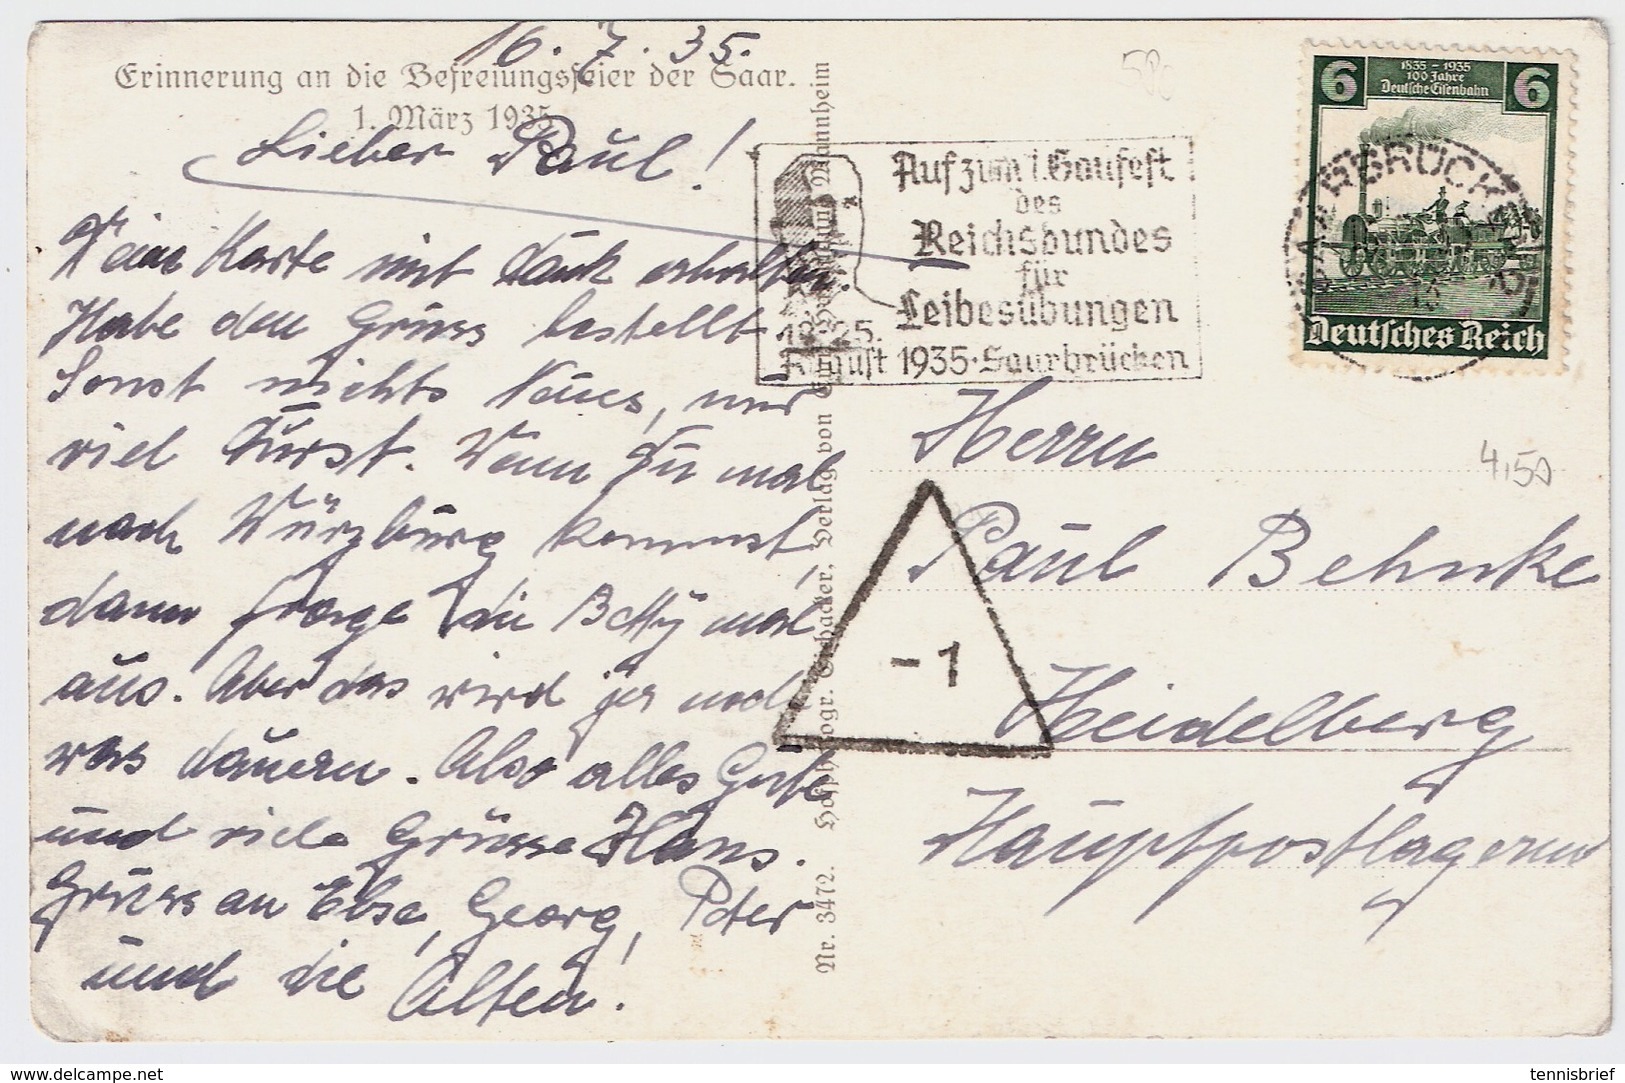 16.7.35.
Erinnerung an die Befreiungsfeier der Saar.
1. März 1935
Lieber Paul!
Deine Karte mit Dank erhalten.
Habe den Gruss bestellt.
Sonst nichts Neues, nur
viel Durst. Wenn Du mal
nach Würzburg kommst,
dann frage die Betty mal
aus. Aber das wird ja noch
was dauern. Also alles Gute
und viele Grüsse Hans.
Gruss an Else, Georg, Peter
und die Alten!
Nr. 3472. Hofphotogr. Verlag von Mannheim
Auf zum 1. Gaufest
des
Reichsbundes
für
Leibesübungen
18.-25.
August 1935 · Saarbrücken
6 1835 - 1935 6
100 Jahre
Deutsche Eisenbahn
Deutsches Reich
SAARBRÜCKEN
Herrn
4,50
Paul Behnke
- 1
Heidelberg
Hauptpostlagernd
delcampe.net
tennisbrief